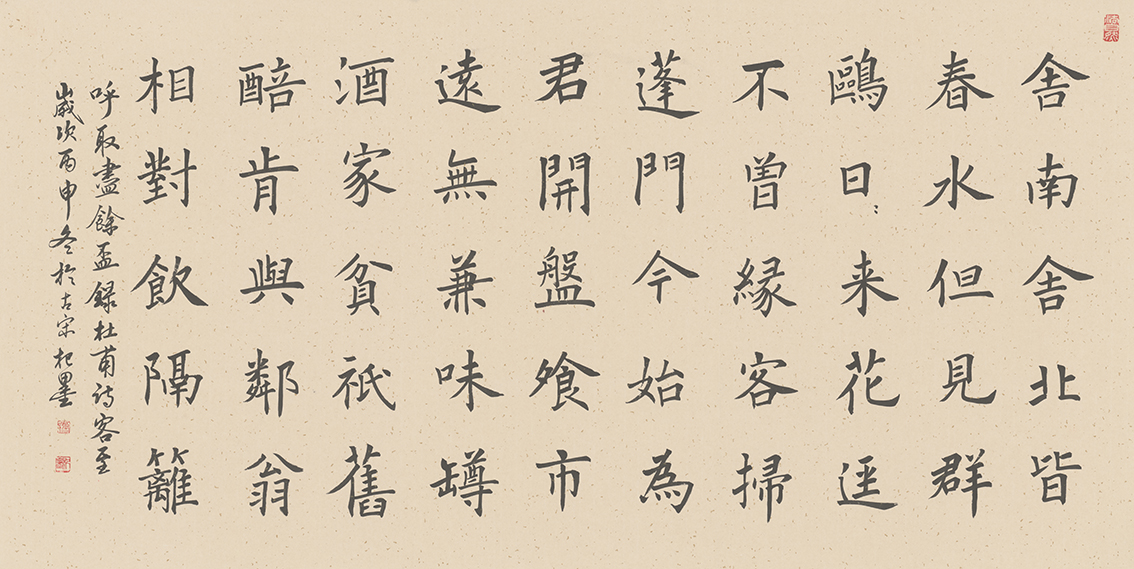 舍南舍北皆
春水但見群
鷗日〻来花逕
不曽緣客掃
蓬門今始為
君開盤飧市
遠無兼味罇
酒家貧祇舊
醅肯與鄰翁
相對飲隔籬
呼取盡餘盃錄杜甫詩客至
歲次丙申冬於古宋